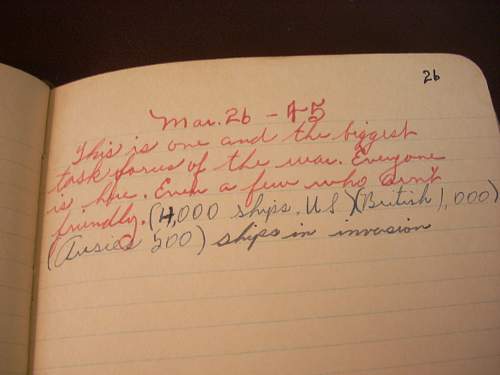 26
Mar. 26 - 45
This is one and the biggest
task forces of the war. Everyone
is here. Even a few who aint
friendly. (4,000 ships. U.S.)(British 1,000)
(Ausies 500) ships in invasion